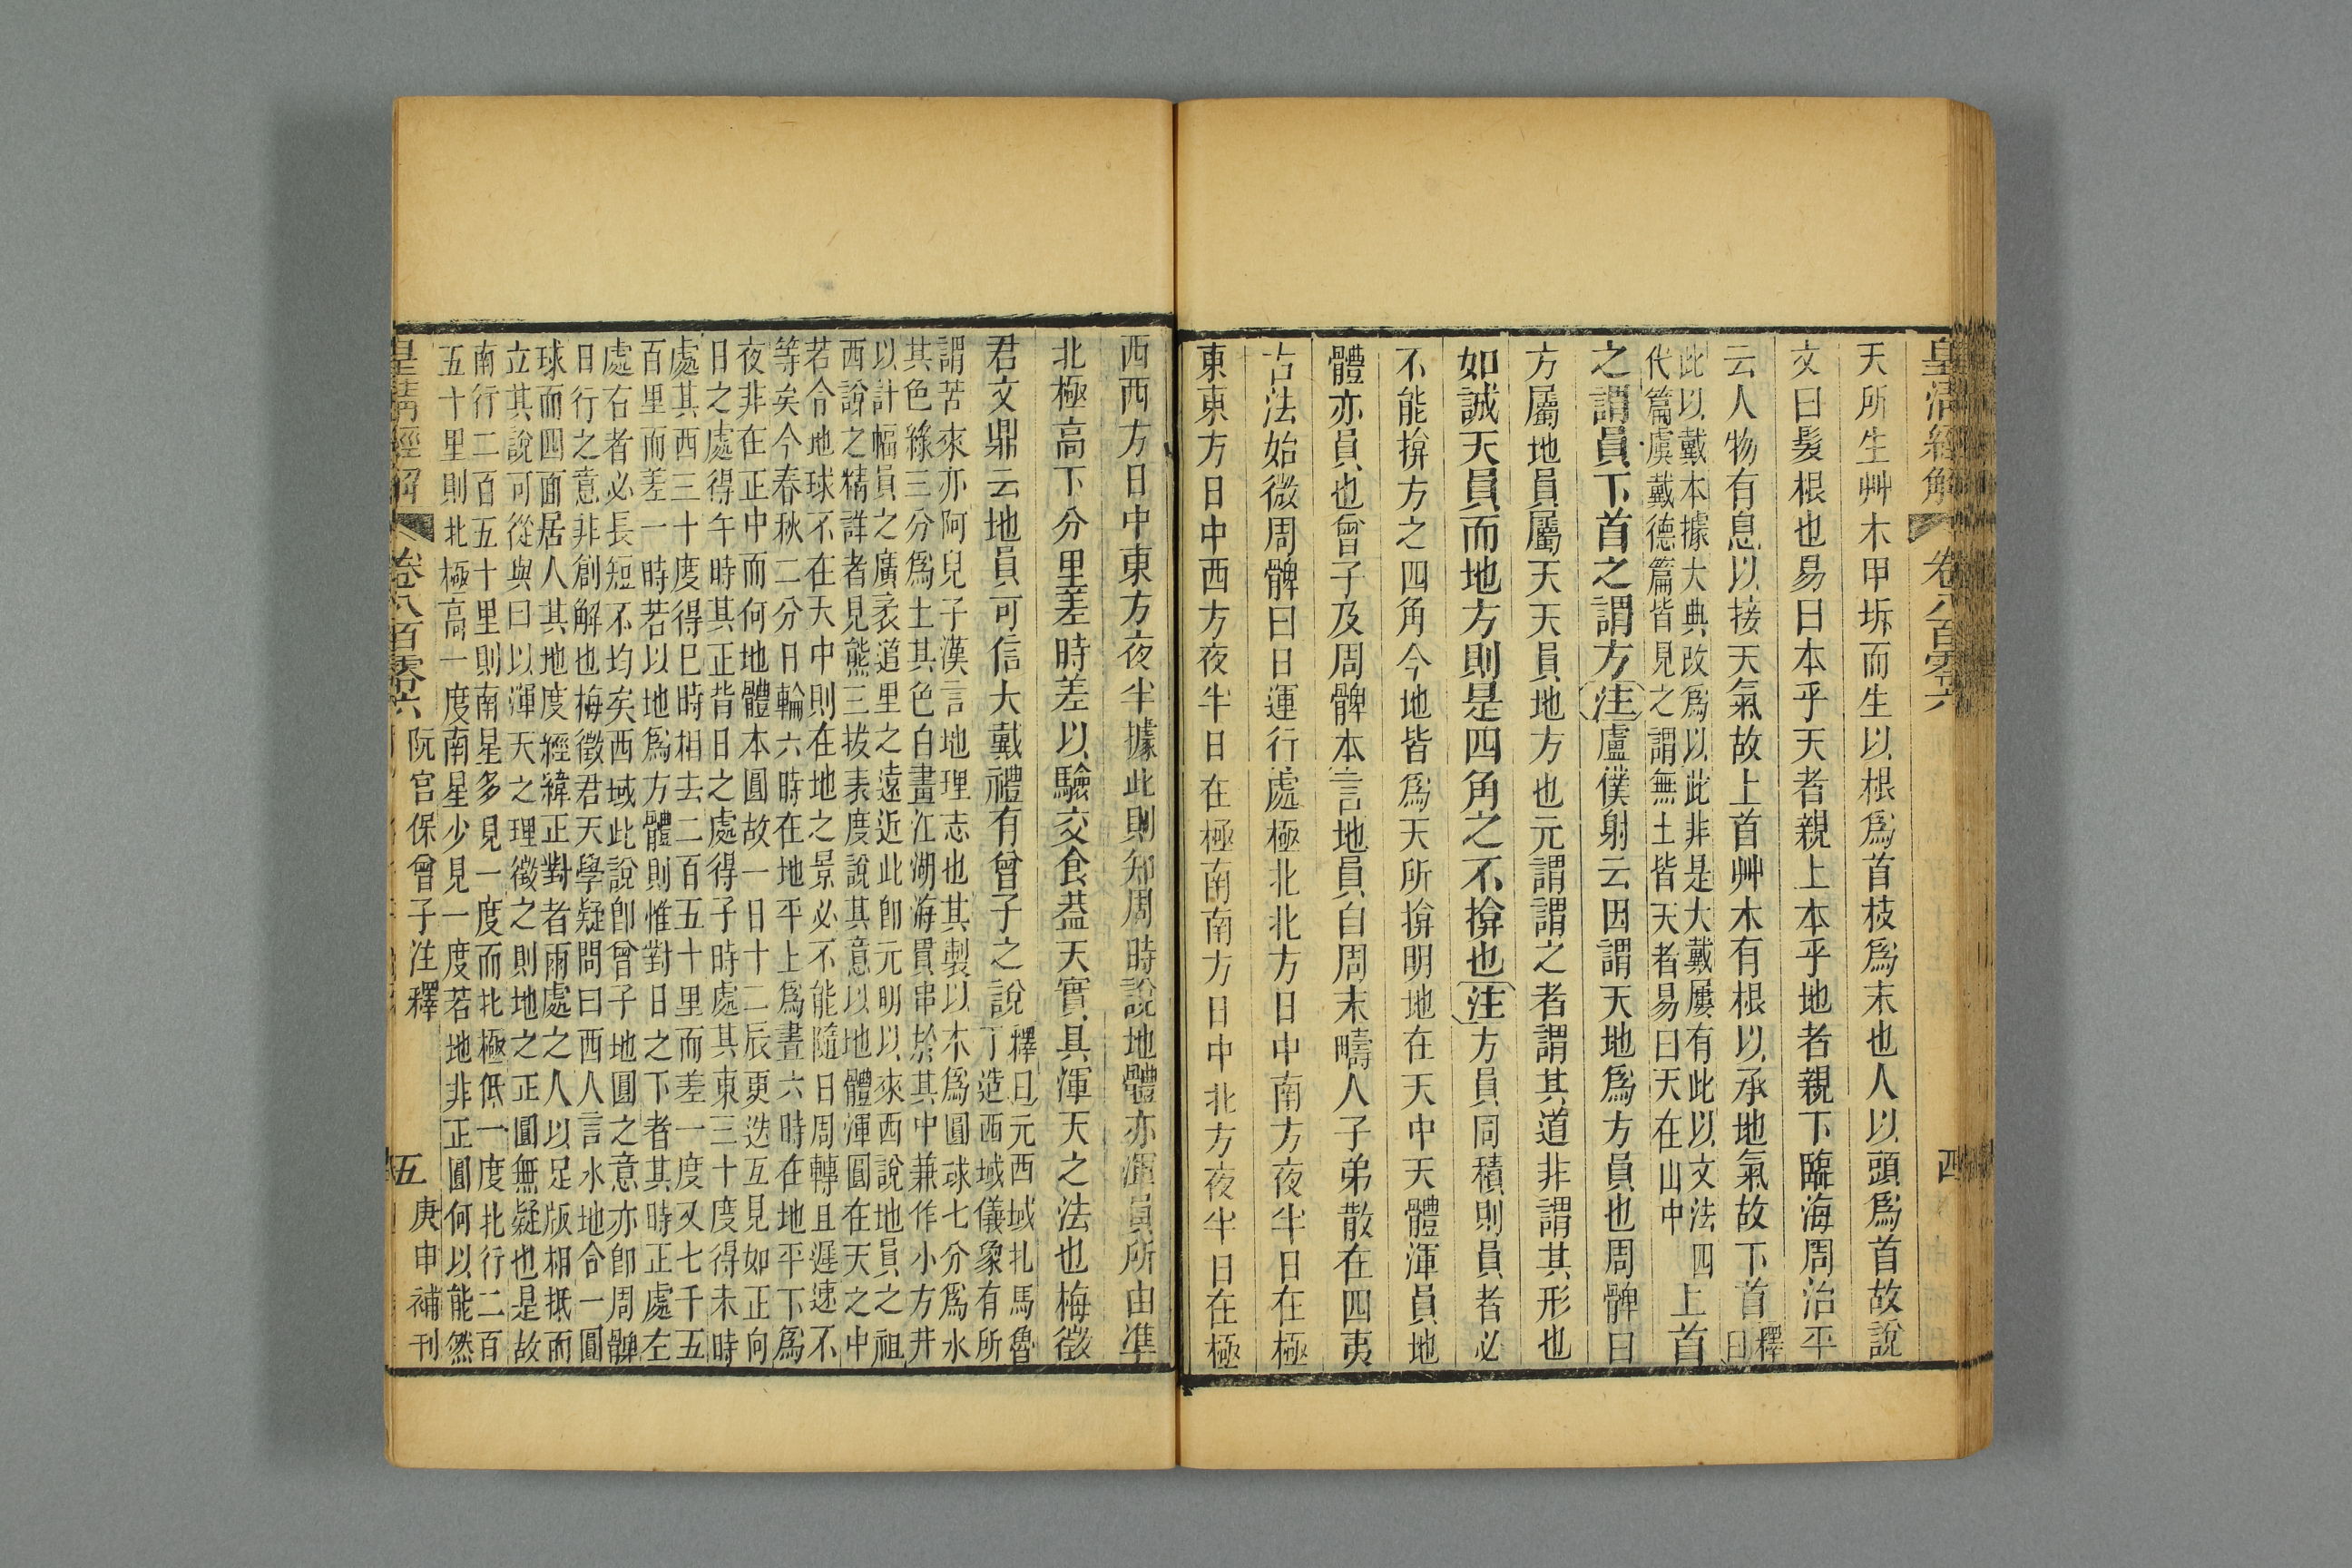 皇清經解 卷八百零六 四
天所生艸木甲坼而生以根爲首枝爲末也人以頭爲首故說
文曰髮根也易曰本乎天者親上本乎地者親下臨海周治平
云人物有息以接天氣故上首艸木有根以承地氣故下首釋曰
此以戴本據大典改爲以此非是大戴屢有此以文法四
代篇虞戴德篇皆見之謂無土皆天者易曰天在山中
上首
之謂員下首之謂方注盧僕射云因謂天地爲方員也周髀曰
方屬地員屬天天員地方也元謂謂之者謂其道非謂其形也
如誠天員而地方則是四角之不揜也注方員同積則員者必
不能揜方之四角今地皆爲天所揜明地在天中天體渾員地
體亦員也曾子及周髀本言地員自周末疇人子弟散在四夷
古法始微周髀曰日運行處極北北方日中南方夜半日在極
東東方日中西方夜半日在極南南方日中北方夜半日在極
西西方日中東方夜半據此則知周時說地體亦渾員所由準
北極高下分里差時差以驗交食葢天實具渾天之法也梅徵
君文鼎云地員可信大戴禮有曾子之說
釋曰元西域扎馬魯
丁造西域儀象有所
謂苦來亦阿兒子漢言地理志也其製以木爲圓球七分爲水
其色綠三分爲土其色白畫江湖海貫串於其中兼作小方井
以計幅員之廣袤道里之遠近此卽元明以來西說地員之祖
西說之精詳者見熊三拔表度說其意以地體渾圓在天之中
若令地球不在天中則在地之景必不能隨日周轉且遲速不
等矣今春秋二分日輪六時在地平上爲晝六時在地平下爲
夜非在正中而何地體本圓故一日十二辰更迭互見如正向
日之處得午時其正背日之處得子時處其東三十度得未時
處其西三十度得巳時相去二百五十里而差一度又七千五
百里而差一時若以地爲方體則惟對日之下者其時正處左
處右者必長短不均矣西域此說卽曾子地圓之意亦卽周髀
日行之意非創解也梅徵君天學疑問曰西人言水地合一圓
球而四面居人其地度經緯正對者兩處之人以足版相抵而
立其說可從與曰以渾天之理徵之則地之正圓無疑也是故
南行二百五十里則南星多見一度而北極低一度北行二百
五十里則北極高一度南星少見一度若地非正圓何以能然
皇清經解 卷八百零六 阮宮保曾子注釋 五 庚申補刊